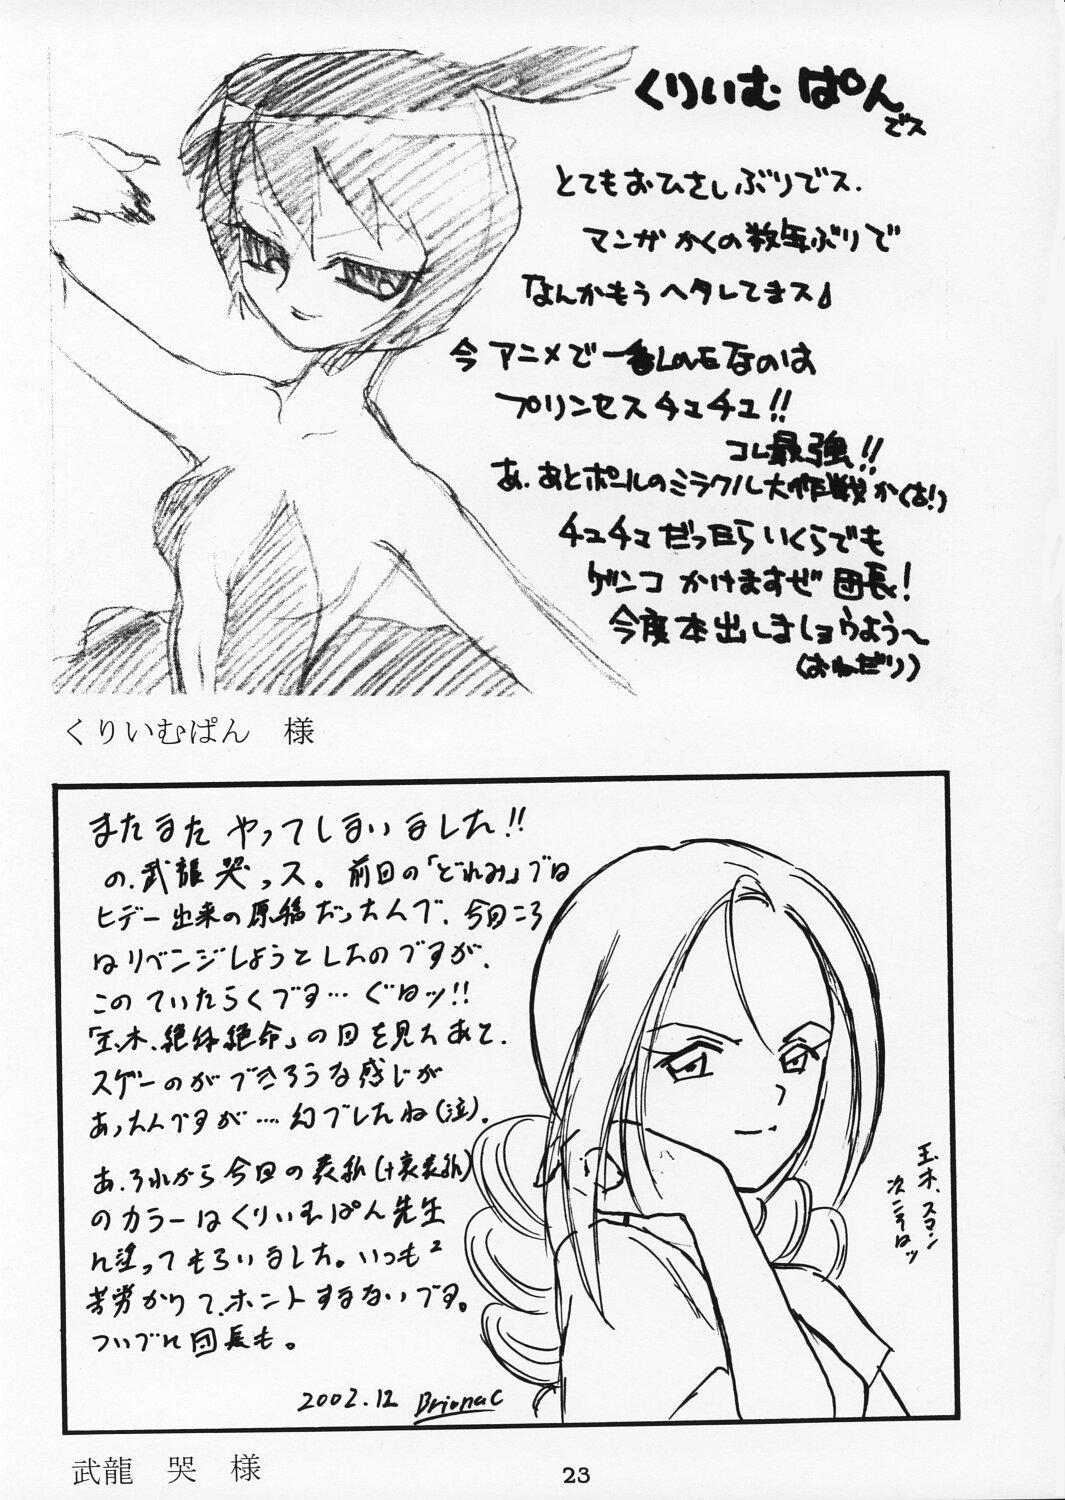 くりいむ ぱん
でス
とてもおひさしぶりでス.
マンガ かくの数年ぶりで
なんかもう ヘタレてまス♪
今 アニメで 一番LOVEなのは
プリンセス チュチュ!!
コレ最強!!
あ、あとポールのミラクル大作戦か(古!)
チュチュ だったら いくらでも
ゲンコ かけますぜ 団長!
今度本出しましョウよう〜
(おねだり)
くりいむぱん 様
またまた やってしまいました!!
の、武龍 哭っス。前回の「どれみ」では
ヒデー出来の原稿だったんで、今回こそ
はリベンジしようとしたのですが、
このていたらくです… ぐはッ!!
「玉木、絶体絶命」の回を見たあと、
スゲーのができそうな感じが
あったんですが…. 幻でしたね(泣)。
あ、それから今回の表紙(+裏表紙)
のカラーはくりいむぱん先生
に塗ってもらいました。いつも²
苦労かりて、ホントすまないです。
ついでに団長も。
2002.12 Brionac
玉木、スマン
次こそはッ
武龍 哭 様
23